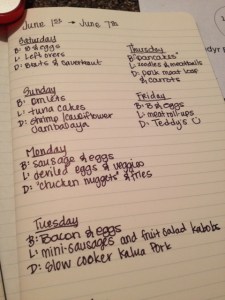 June 1st → June 7th
Saturday
B: B & eggs
L: left overs
D: Brats & sauerkraut
Thursday
B: "pancakes"
L: zoodles & meatballs
D: Pork meat loaf
& carrots
Sunday
B: omlets
L: tuna cakes
D: shrimp/cauliflower
Jambalaya
Friday
B: B & eggs
L: meat roll-ups
D: Teddy's
Monday
B: sausage & eggs
L: deviled eggs & veggies
D: "chicken nuggets" & fries
Tuesday
B: Bacon & eggs
L: mini-sausages and fruit salad kabobs
D: Slow cooker Kalua Pork